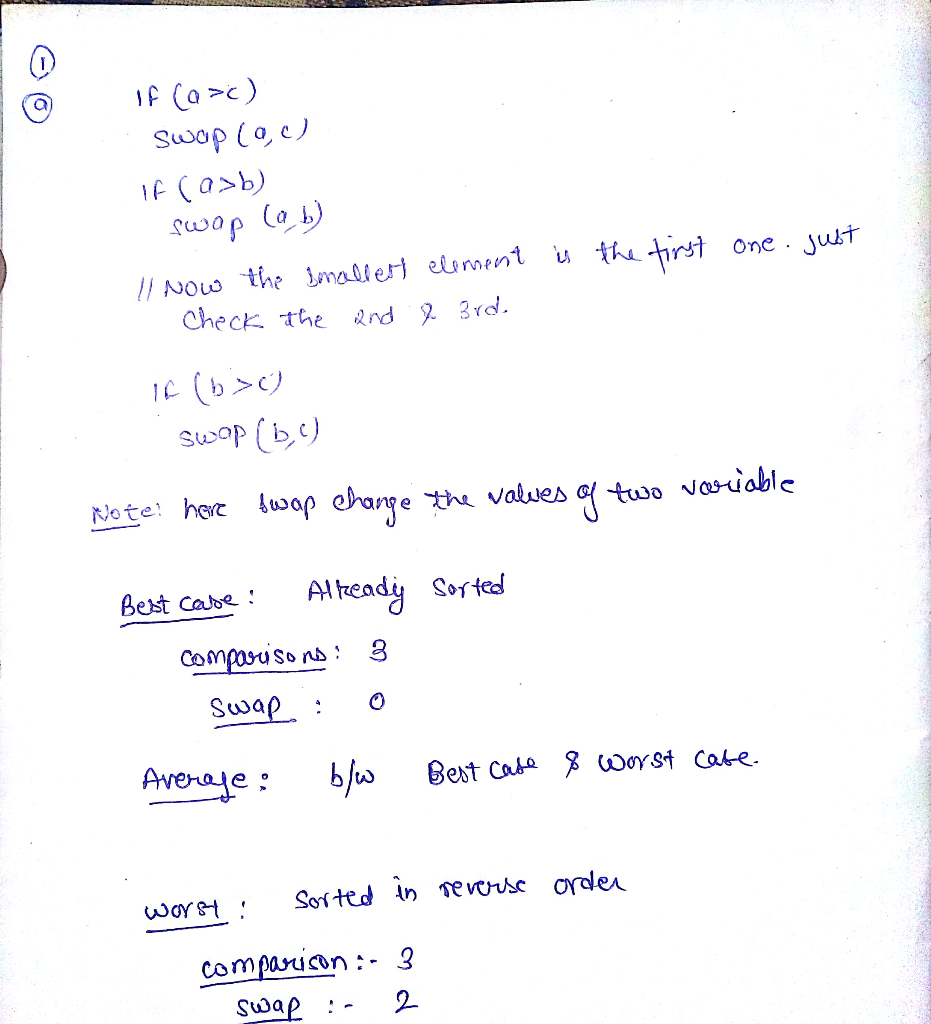 1
a
If (a>c)
swap (a,c)
If (a>b)
swap (a,b)
// Now the smallest element is the first one. just
Check the 2nd & 3rd.
If (b>c)
swap (b,c)
Note: here swap change the values of two variable
Best case: Already Sorted
comparisons: 3
swap : 0
Average: b/w Best Case & worst case.
worst: Sorted in reverse order
comparison :- 3
swap :- 2